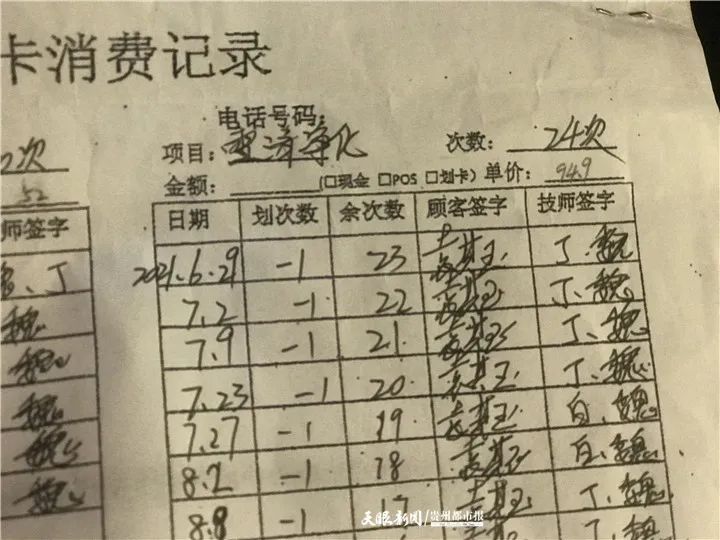 卡消费记录
电话号码:
次
项目: 净化 次数: 24次
52
金额: (□现金 □POS □划卡) 单价: 949
师签字
日期 划次数 余次数 顾客签字 技师签字
丁
2021.6.29 -1 23 丁.魏
魏
7.2 -1 22 丁、魏
魏
7.9 -1 21 丁、魏
魏
7.23 -1 20 丁、魏
魏
7.27 -1 19 白、魏
魏
8.2 -1 18 白、魏
魏
8.8 -1 17 丁、魏
天眼新闻/贵州都市报